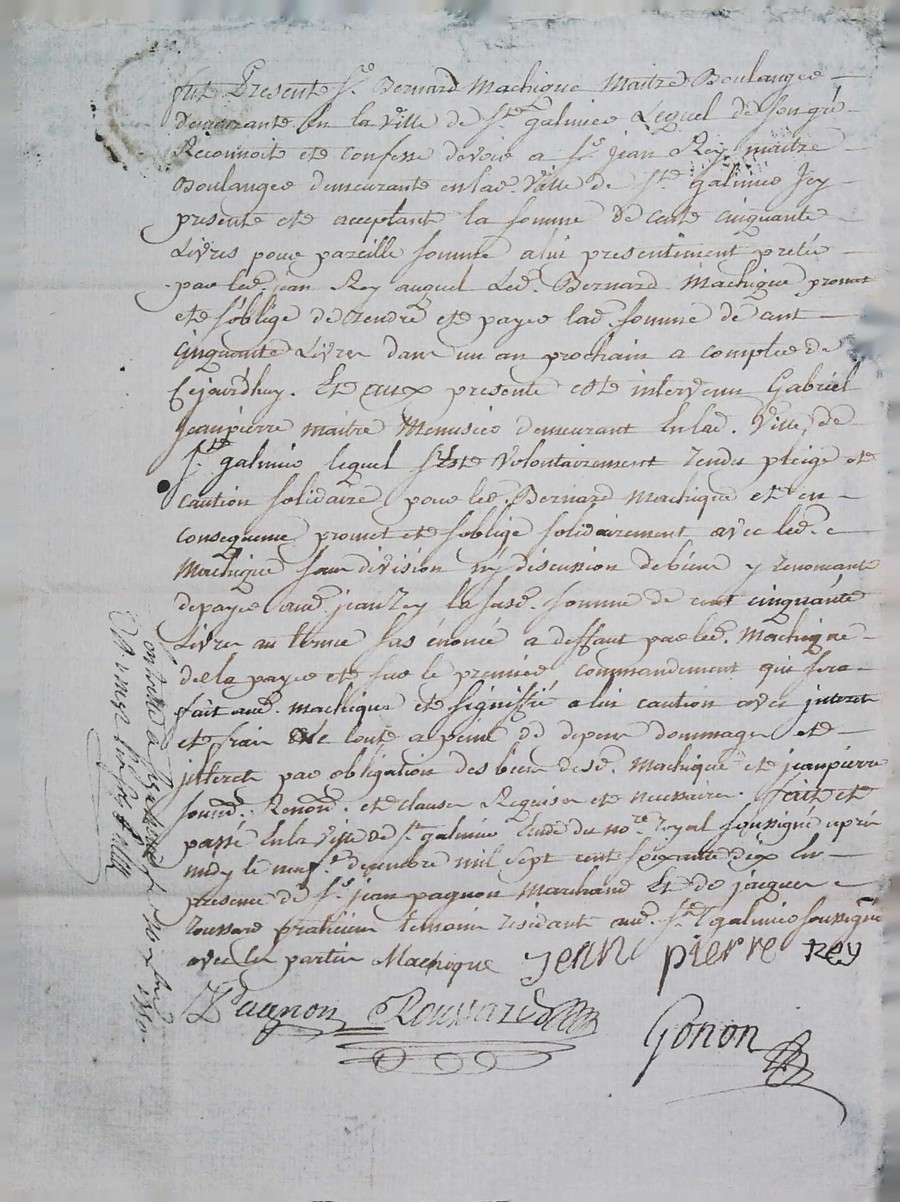 fut Present Sr. Bernard Machique Maitre Boulanger
demeurante en la ville de St galmier Lequel de son gré
Reconnoit ete confesse devoir a Sr. jean Rey maitre
Boulanger demeurante enlad. ville de St Galmier Icy
presente ete acceptant la somme de cente cinquante
Livres pour pareille somme alui presentement preteé
par led. jean Rey auquel Led. Bernard Machique promet
ete s'oblige de rendre ete payer lad. somme de cent
cinquante Livres dans un an prochain a compter de
Cejourdhuy. Ete aux presente este intervenu Gabriel
jeanpierre maitre Menusier demeurant Enlad. Ville de
St galmier lequel s'este volontairement rendu pleige ete
caution solidaire pour led. Bernard Machique ete en
consequence promet ete s'oblige solidairement avec led.
Machique sans division ny discussion debiens y renoncante
depayer aud. jean rey la susd. somme de cent cinquante
Livres au terme sus énoncé a deffaut par led. Machique
dela payer ete sur le premier commandement qui sera
fait aud. machique ete signiffié a lui caution avec interet
ete frais de toute a peine de depens dommages ete
interets par obligation des biens desd. Machique ete jeanpierre
soumd. Renond. ete clauses Requises ete necessaires. faite ete
passé En la ville de St galmier Etude du nore. royal soussigné après
midy le neuf. decembre mil sept cent soixante dix En
presence de Sr. jean pagnon Marchand Et de jacques
roussard praticien temoins residant aud. St galmier soussignés
avec les parties Machique jean pierre Rey
Pagnon Roussard
Gonon